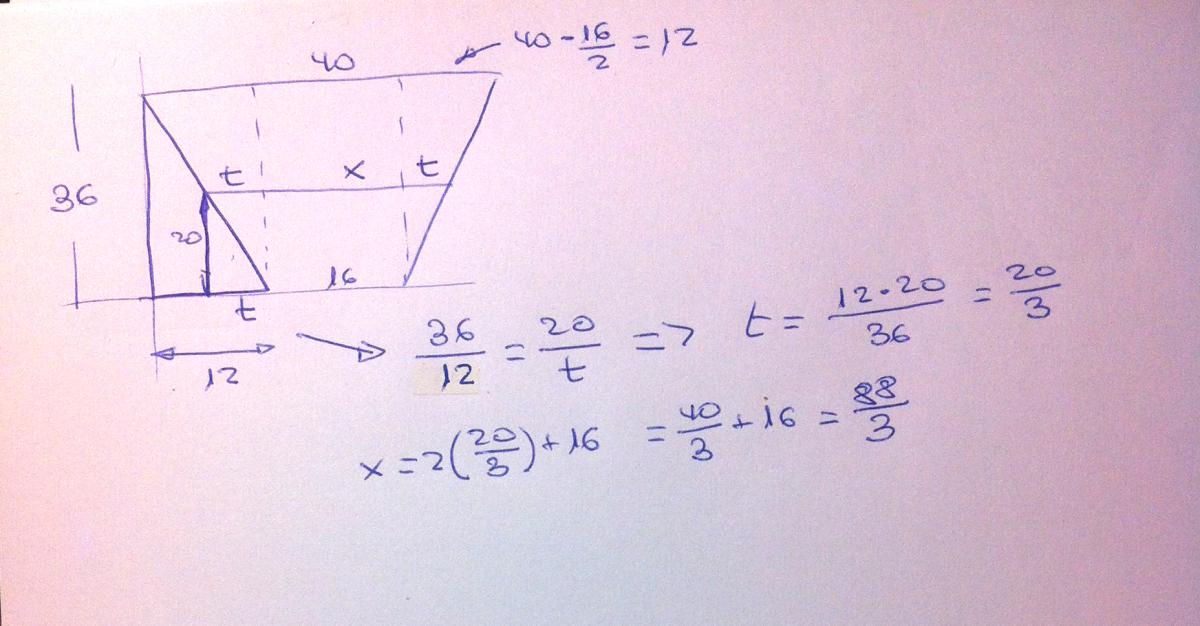 40
40 - 16/2 = 12
t x t
36
20
16
t
12
36/12 = 20/t => t = 12·20/36 = 20/3
x = 2(20/3) + 16 = 40/3 + 16 = 88/3